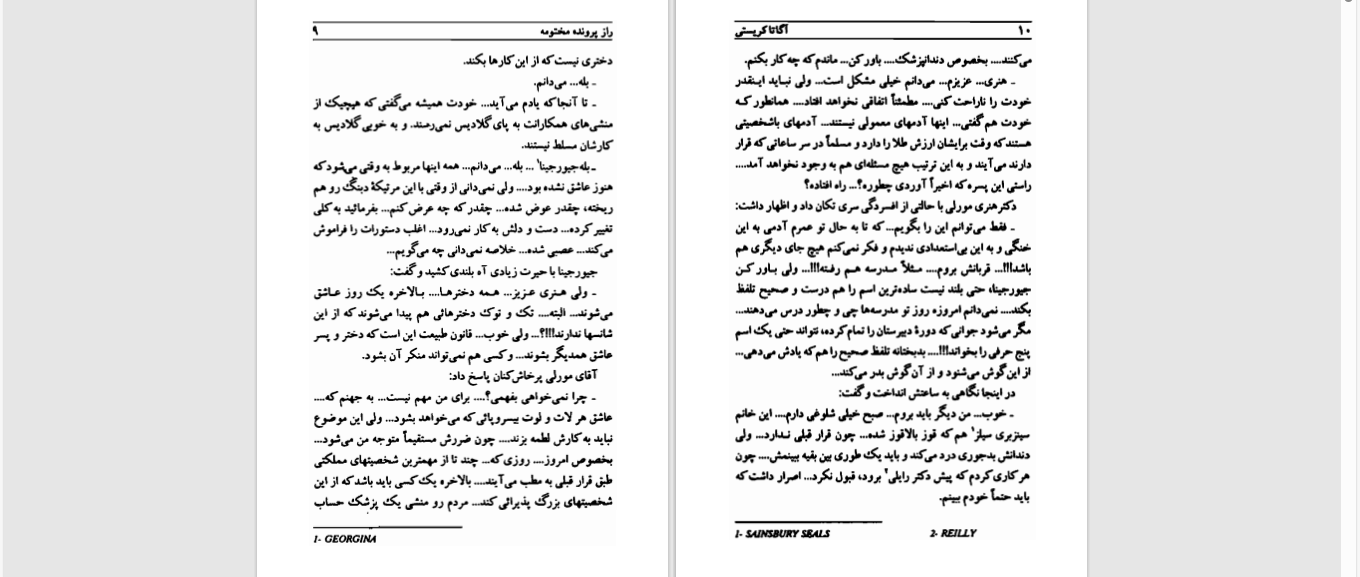 راز پرونده مختومه ۹
دختری نیست که از این کارها بکند.
ـ بله... می‌دانم.
ـ تا آنجا که یادم می‌آید... خودت همیشه می‌گفتی که هیچیک از
منشی‌های همکارانت به پای گلادیس نمی‌رسند. و به خوبی گلادیس به
کارشان مسلط نیستند.
ـ بله جیورجینا۱ ... بله... می‌دانم... همه اینها مربوط به وقتی می‌شود که
هنوز عاشق نشده بود.... ولی نمی‌دانی از وقتی با این مرتیکهٔ دبنگ رو هم
ریخته، چقدر عوض شده... چقدر که چه عرض کنم... بفرمائید به کلی
تغییر کرده... دست و دلش به کار نمی‌رود... اغلب دستورات را فراموش
می‌کند... عصبی شده... خلاصه نمی‌دانی چه می‌گویم...
جیورجینا با حیرت زیادی آه بلندی کشید و گفت:
ـ ولی هنری عزیز... همه دخترها.... بالاخره یک روز عاشق
می‌شوند... البته.... تک و توک دخترهائی هم پیدا می‌شوند که از این
شانسها ندارند!!!؟... ولی خوب... قانون طبیعت این است که دختر و پسر
عاشق همدیگر بشوند... و کسی هم نمی‌تواند منکر آن بشود.
آقای مورلی پرخاش‌کنان پاسخ داد:
ـ چرا نمی‌خواهی بفهمی؟.... برای من مهم نیست... به جهنم که....
عاشق هر لات و لوت بیسروپائی که می‌خواهد بشود... ولی این موضوع
نباید به کارش لطمه بزند.... چون ضررش مستقیماً متوجه من می‌شود...
بخصوص امروز.... روزی که... چند تا از مهمترین شخصیتهای مملکتی
طبق قرار قبلی به مطب می‌آیند.... بالاخره یک کسی باید باشد که از این
شخصیتهای بزرگ پذیرائی کند... مردم رو منشی یک پزشک حساب
1- GEORGINA
۱۰ آگاتا کریستی
می‌کنند.... بخصوص دندانپزشک.... باور کن... ماندم که چه کار بکنم.
ـ هنری... عزیزم... می‌دانم خیلی مشکل است... ولی نباید اینقدر
خودت را ناراحت کنی.... مطمئناً اتفاقی نخواهد افتاد.... همانطور که
خودت هم گفتی... اینها آدمهای معمولی نیستند... آدمهای باشخصیتی
هستند که وقت برایشان ارزش طلا را دارد و مسلماً در سر ساعاتی که قرار
دارند می‌آیند و به این ترتیب هیچ مسئله‌ای هم به وجود نخواهد آمد....
راستی این پسره که اخیراً آوردی چطوره؟... راه افتاده؟
دکتر هنری مورلی با حالتی از افسردگی سری تکان داد و اظهار داشت:
ـ فقط می‌توانم این را بگویم... که تا به حال تو عمرم آدمی به این
خنگی و به این بی‌استعدادی ندیدم و فکر نمی‌کنم هیچ جای دیگری هم
باشد!!!... قربانش بروم.... مثلاً مدرسه هم رفته!!!... ولی باور کن
جیورجینا، حتی بلند نیست ساده‌ترین اسم را هم درست و صحیح تلفظ
بکند.... نمی‌دانم امروزه روز تو مدرسه‌ها چی و چطور درس می‌دهند...
مگر می‌شود جوانی که دورهٔ دبیرستان را تمام کرده، نتواند حتی یک اسم
پنج حرفی را بخواند!!!.... بدبختانه تلفظ صحیح را هم که یادش می‌دهی...
از این گوش می‌شنود و از آن گوش بدر می‌کند...
در اینجا نگاهی به ساعتش انداخت و گفت:
ـ خوب... من دیگر باید بروم... صبح خیلی شلوغی دارم.... این خانم
سینزبری سیلز۱ هم که قوز بالاقوز شده... چون قرار قبلی ندارد... ولی
دندانش بدجوری درد می‌کند و باید یک طوری بین بقیه ببینمش.... چون
هر کاری کردم که پیش دکتر رایلی۲ برود، قبول نکرد... اصرار داشت که
باید حتماً خودم ببینم.
1- SAINSBURY SEALS 2- REILLY